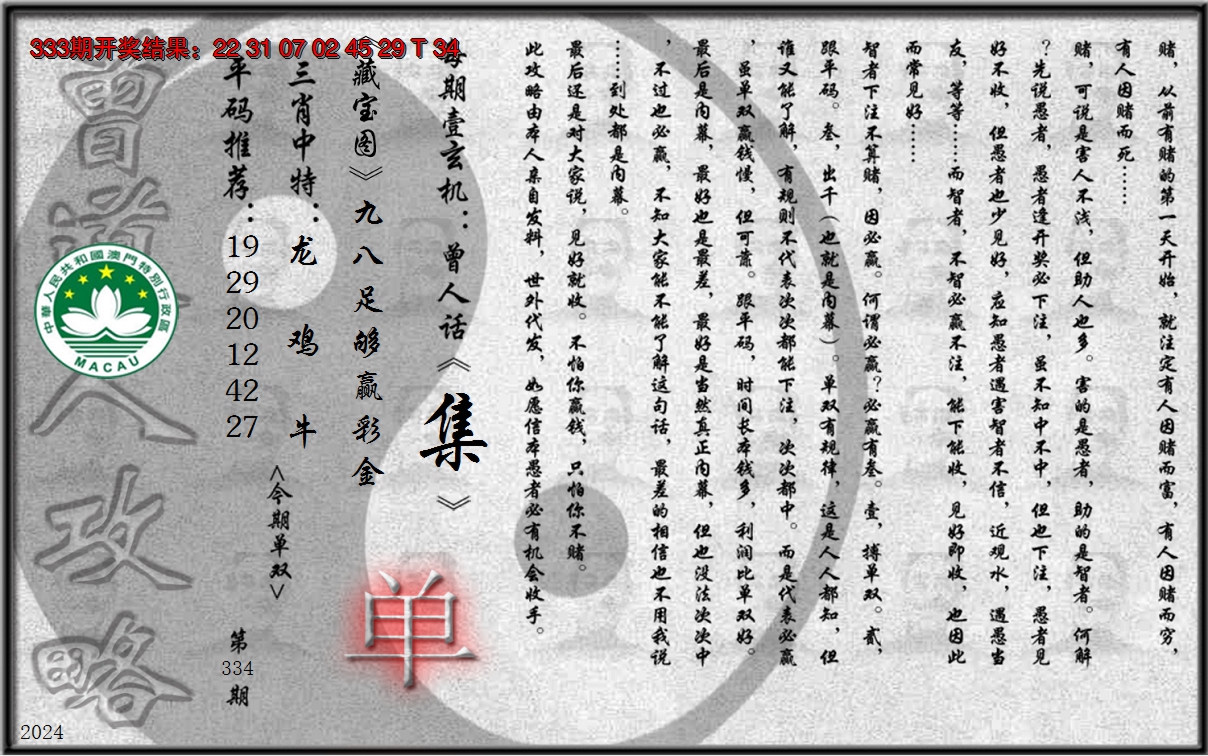 333期开奖结果：22 31 07 02 45 29 T 34
赌，从前有赌的第一天开始，就注定有人因赌而富，有人因赌而穷，
有人因赌而死……
赌，可说是害人不浅，但助人也多。害的是愚者，助的是智者。何解
？先说愚者，愚者逢开奖必下注，虽不知中不中，但也下注，愚者见
好不收，但愚者也少见好，应知愚者遇害智者不信，近观水，遇愚当
友，等等……而智者，不智必赢不注，能下能收，见好即收，也因此
而常见好……
智者下注不算赌，因必赢。何谓必赢？必赢有叁。壹，搏单双。贰，
跟平码。叁，出千（也就是内幕）。单双有规律，这是人人都知，但
谁又能了解，有规则不代表次次都能下注，次次都中。而是代表必赢
，虽单双赢钱慢，但可靠。跟平码，时间长本钱多，利润比单双好。
最后是内幕，最好也是最差，最好是当然真正内幕，但也没法次次中
，不过也必赢，不知大家能不能了解这句话，最差的相信也不用我说
……到处都是内幕。
最后还是对大家说，见好就收。不怕你赢钱，只怕你不赌。
此攻略由本人亲自发料，世外代发，如愿信本愚者必有机会收手。
每期壹玄机：曾人话《集》
《藏宝图》九八足够赢彩金
三肖中特：龙 鸡 牛
平码推荐：19 29 20 12 42 27
<今期单双>
单
第334期
曾道人攻略
中華人民共和國澳門特別行政區
MACAU
2024